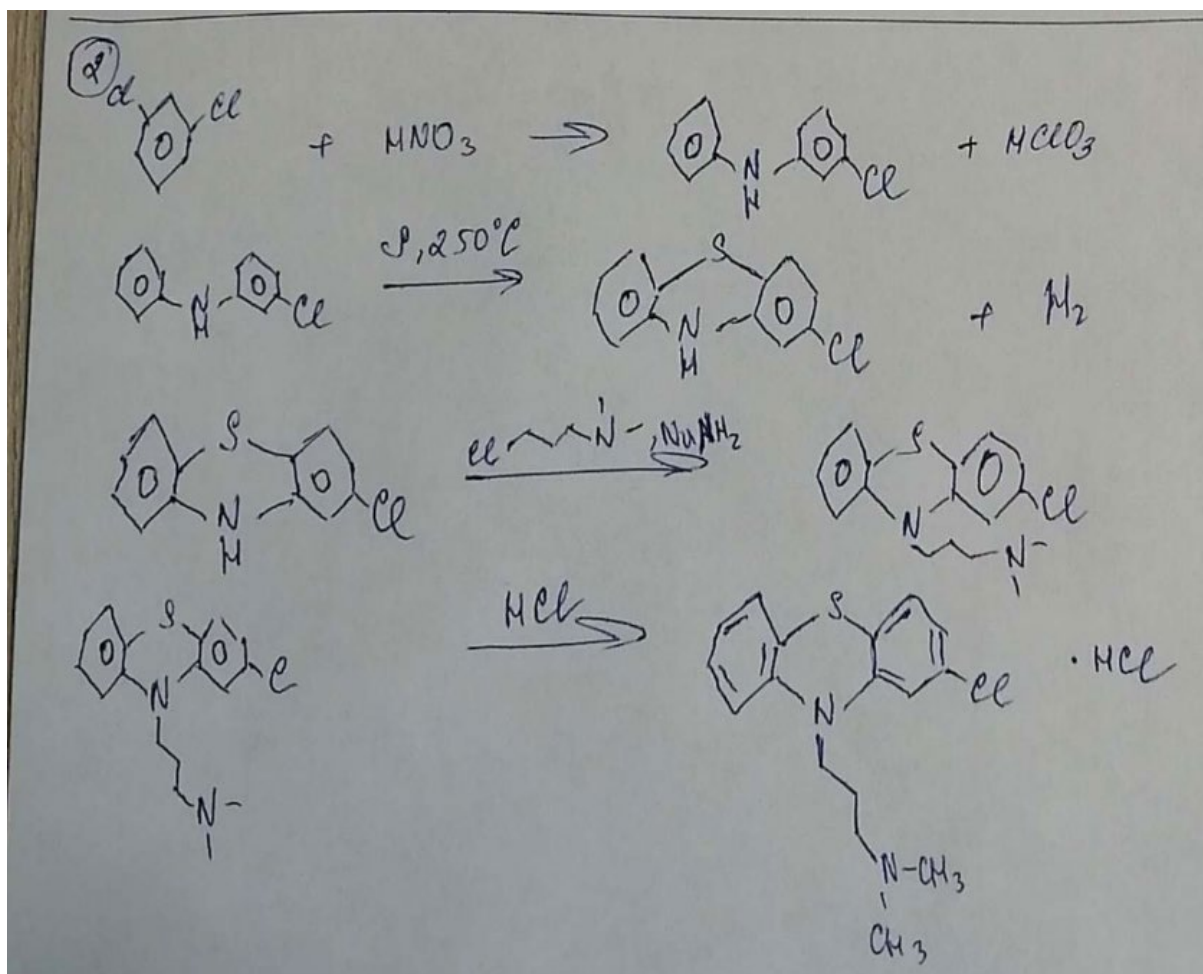 2
Cl Cl + HNO3 → N H Cl + HClO3
N H Cl S, 250°C → S N H Cl + H2
S N H Cl Cl N , NaNH2 → S N Cl N
S N Cl N HCl → S N Cl N-CH3 CH3 · HCl